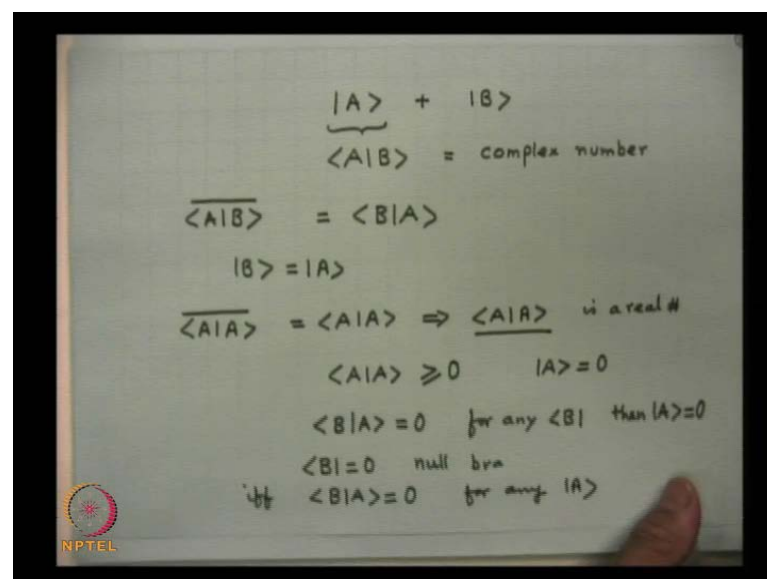 |A> + |B>
<A|B> = complex number
<A|B>̅ = <B|A>
|B> = |A>
<A|A>̅ = <A|A> ⇒ <A|A> is a real #
<A|A> ⩾ 0 |A> = 0
<B|A> = 0 for any <B| then |A> = 0
<B| = 0 null bra
iff <B|A> = 0 for any |A>
NPTEL